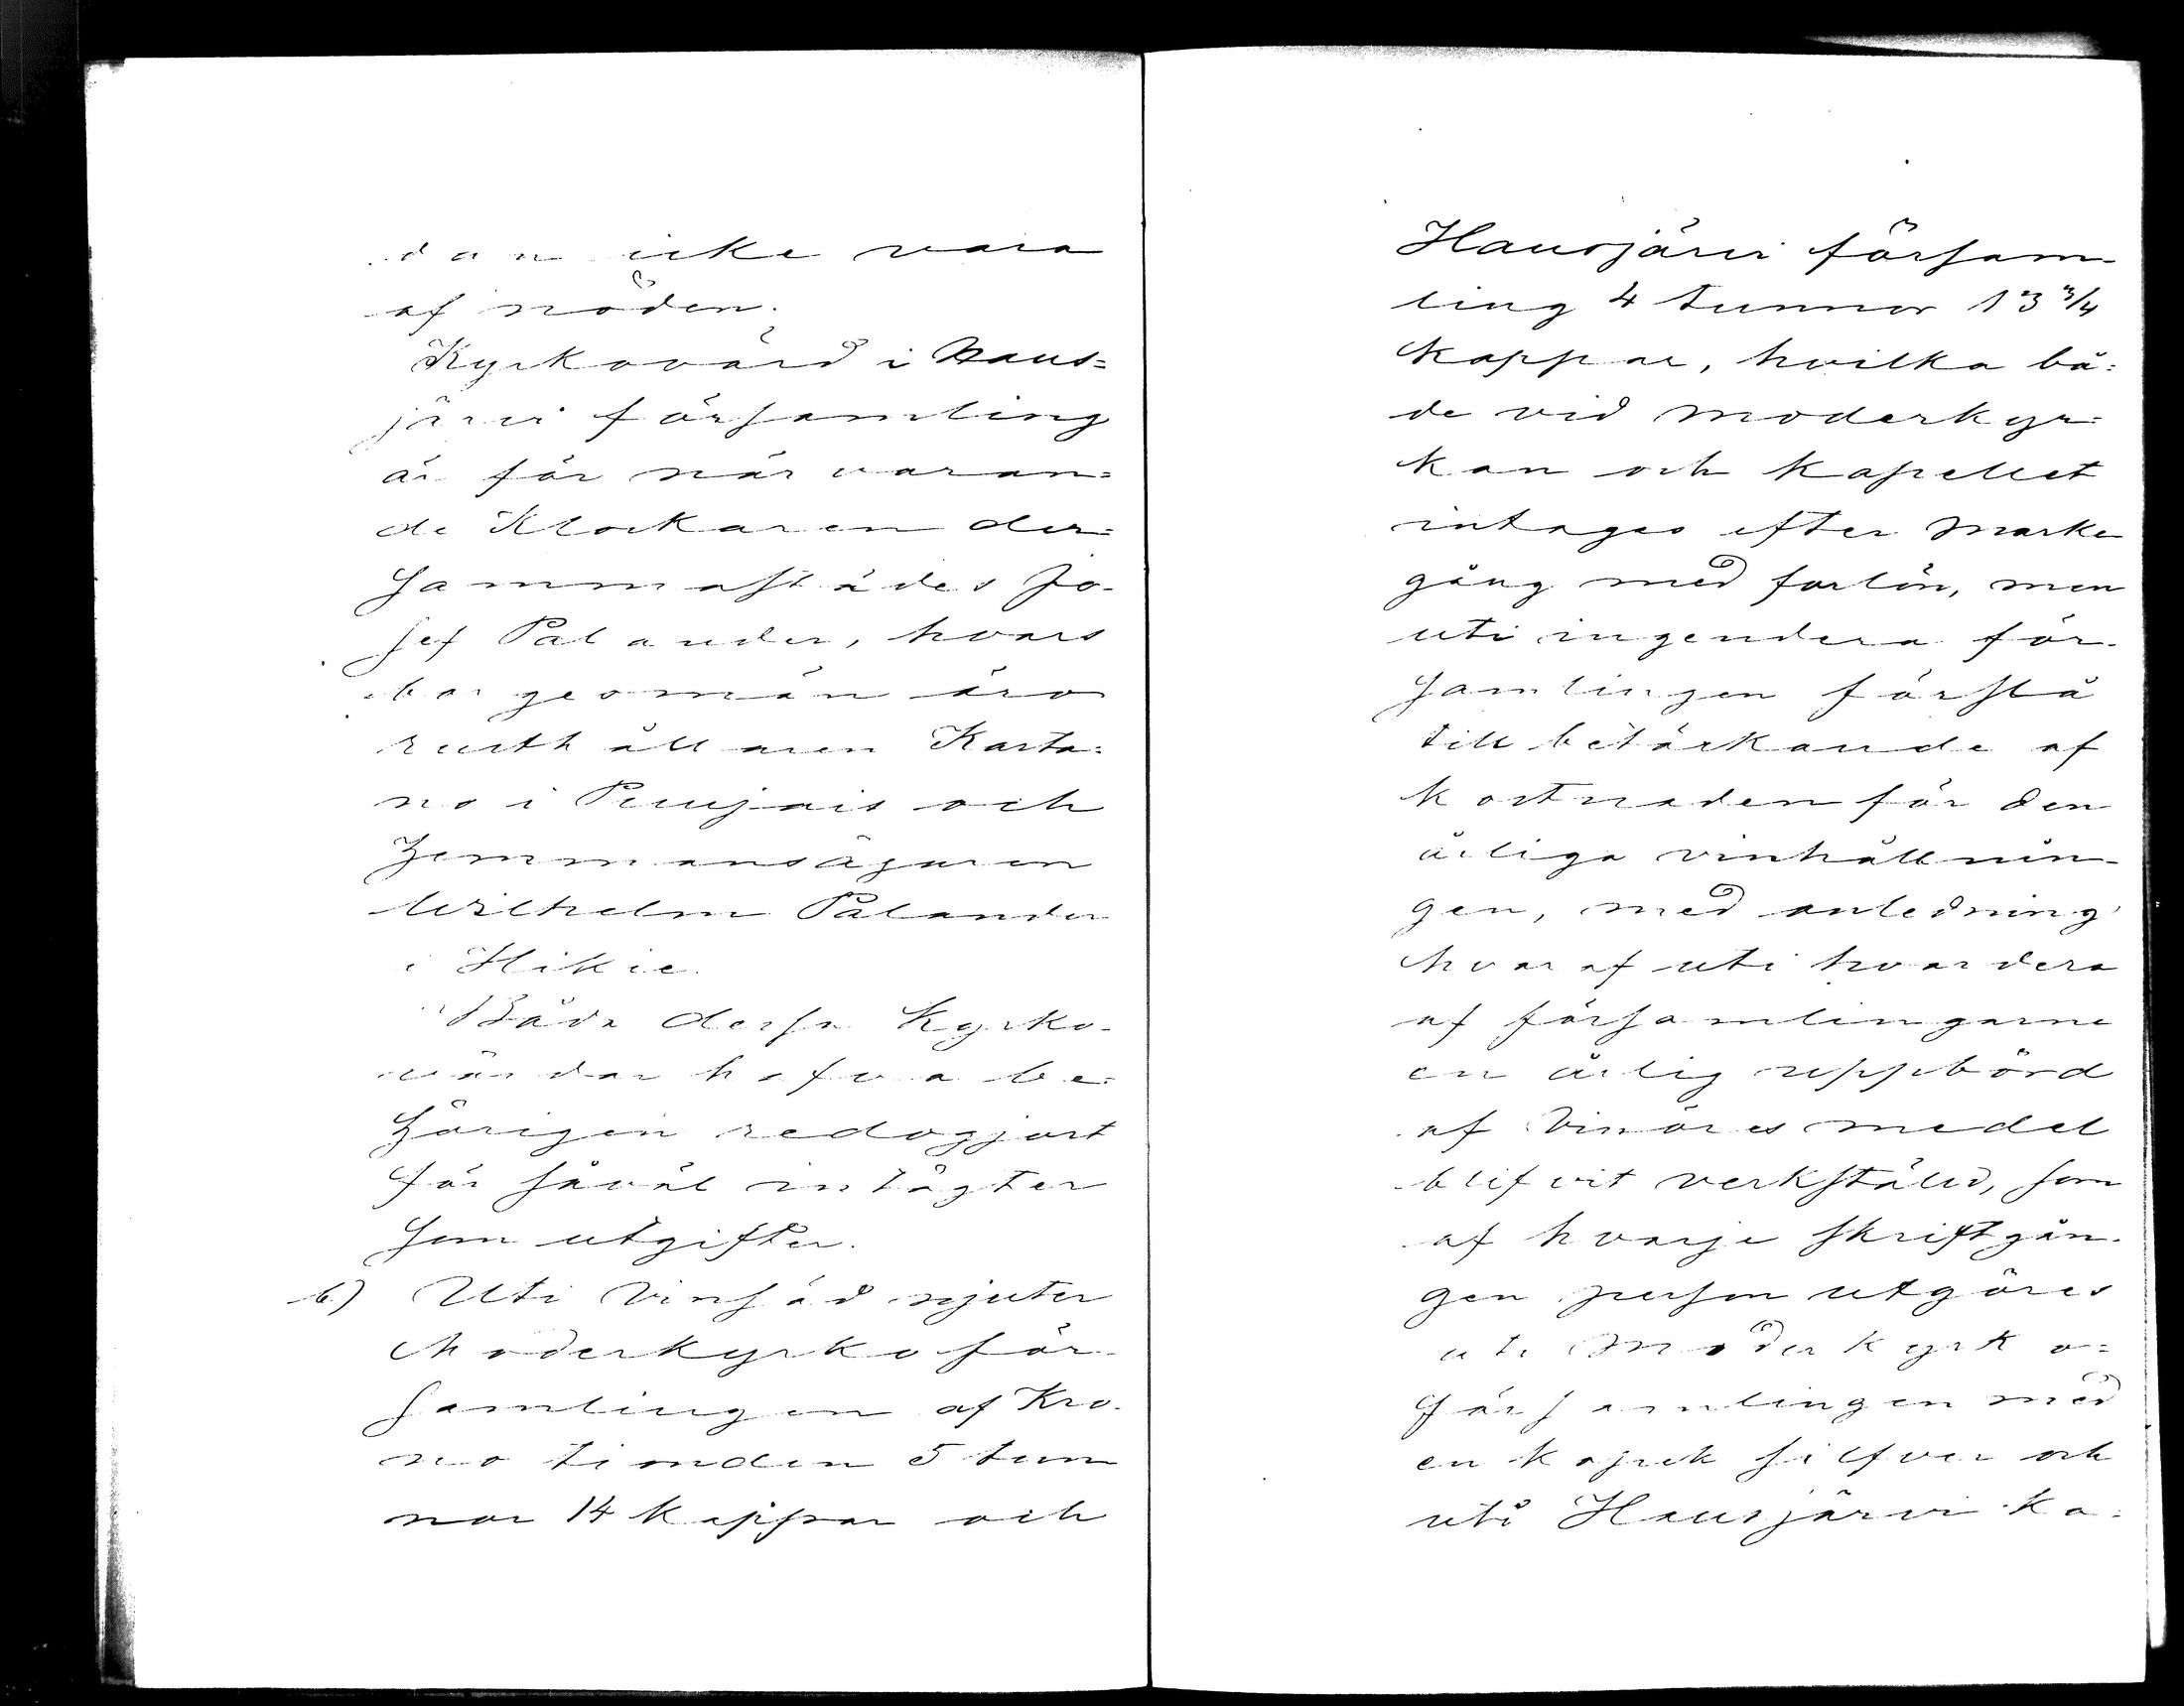 dan icke vara
af nöden.
Kyrkovärd i Haus=
järvi församling
är för när varan=
de Klockaren der=
sammastädes Jo-
sef Palander, hvars
borgesmän äro
rusthållaren Karta=
no i Puujais och
Hemmansägaren
Wilhelm Palander
i Hikie.
Båda dessa Kyrko-
värdar hafva be=
hörigen redogjort
för såväl intägter
som utgifter.
b) Uti Vinsäd njuter
Moderkyrkoför-
samlingen af Kro-
no tionden 5 tun
nor 14 kappar och
Hausjärvi försam-
ling 4 tunnor 13 3/4
Kappar, hvilka bå=
de vid moderkyr=
kan och kapellet
intages efter Marke
gång med forlön, men
uti ingendera för-
samlingen förslå
till betäckande af
kostnaden för den
årliga vinhålnin-
gen, med anledning
hvaraf uti hvardera
af församlingarne
en årlig uppbörd
af Vinöres medel
blifvit verkställd, som
af hvarje skriftgån-
gen person utgöres
uti Moderkyrko=
församlingen med
en kopek silfver och
uti Hausjärvi Ka=